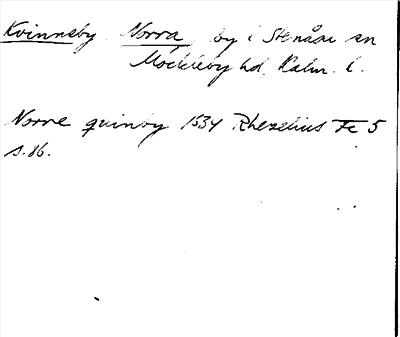 Kvinneby Norra by i Stenåsa sn
Möckleby hd. Kalm. l.
Norre quinby 1634 Rhezelius Fc 5
s. 86.